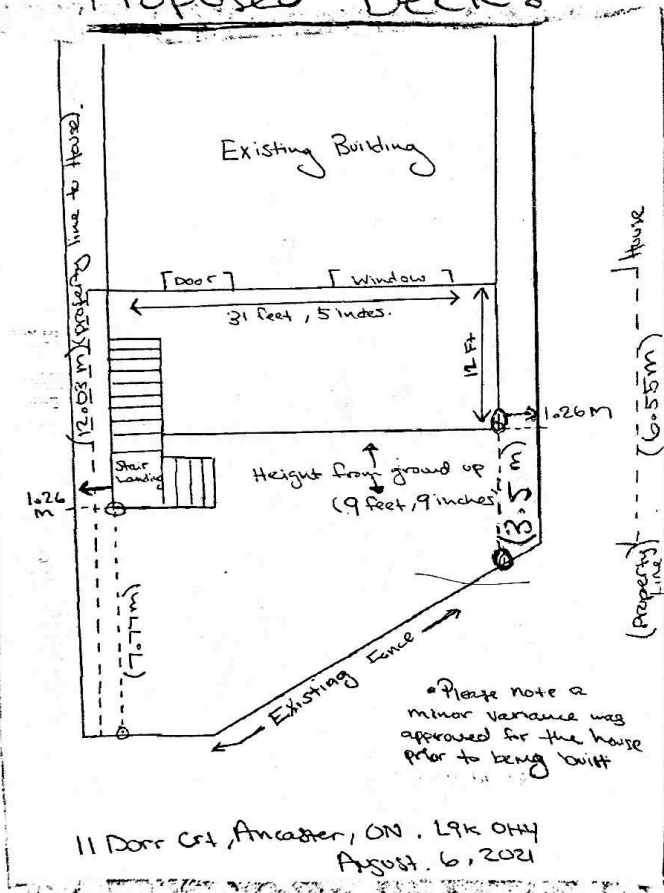 Proposed Deck:
Existing Building
(12.03 m)(property line to House).
Door
Window
31 feet, 5 inches.
12 Ft
1.26 M
Stair
Landing
Height from ground up
(9 feet, 9 inches)
(3.5 m)
1.26
m
(7.77m)
Existing Fence
House
(6.55m)
(Property
Line)
• Please note a
minor variance was
approved for the house
prior to being built
11 Dorr Crt, Ancaster, ON. L9K 0H4
August. 6, 2021